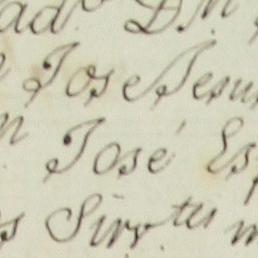 ad.º D.M.
José Jesu
José Es
Sirv.tes